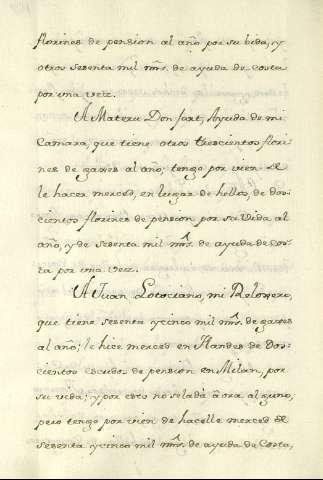 florines de pension al año por su bida, y
otros sesenta mil mrs. de ayuda de costa
por una vez.
A Materu Don fort, Ayuda de mi
Camara, que tiene otros trescientos flori-
nes de gages al año, tengo por vien de
le hacer merced, en lugar de hellos, de dos-
cientos florines de pension por su vida, al
año, y de sesenta mil mrs. de ayuda de cos-
ta por una vez.
A Juan Lotociano, mi Reloxero,
que tiene sesenta ycinco mil mrs. de gages
al año; le hice merced en Flandes de Dos-
cientos escudos de pension en Milan, por
su vida; y por esto no se la dà aora alguno,
pero tengo por vien de hacelle merced de
sesenta ycinco mil mrs. de ayuda de Costa,